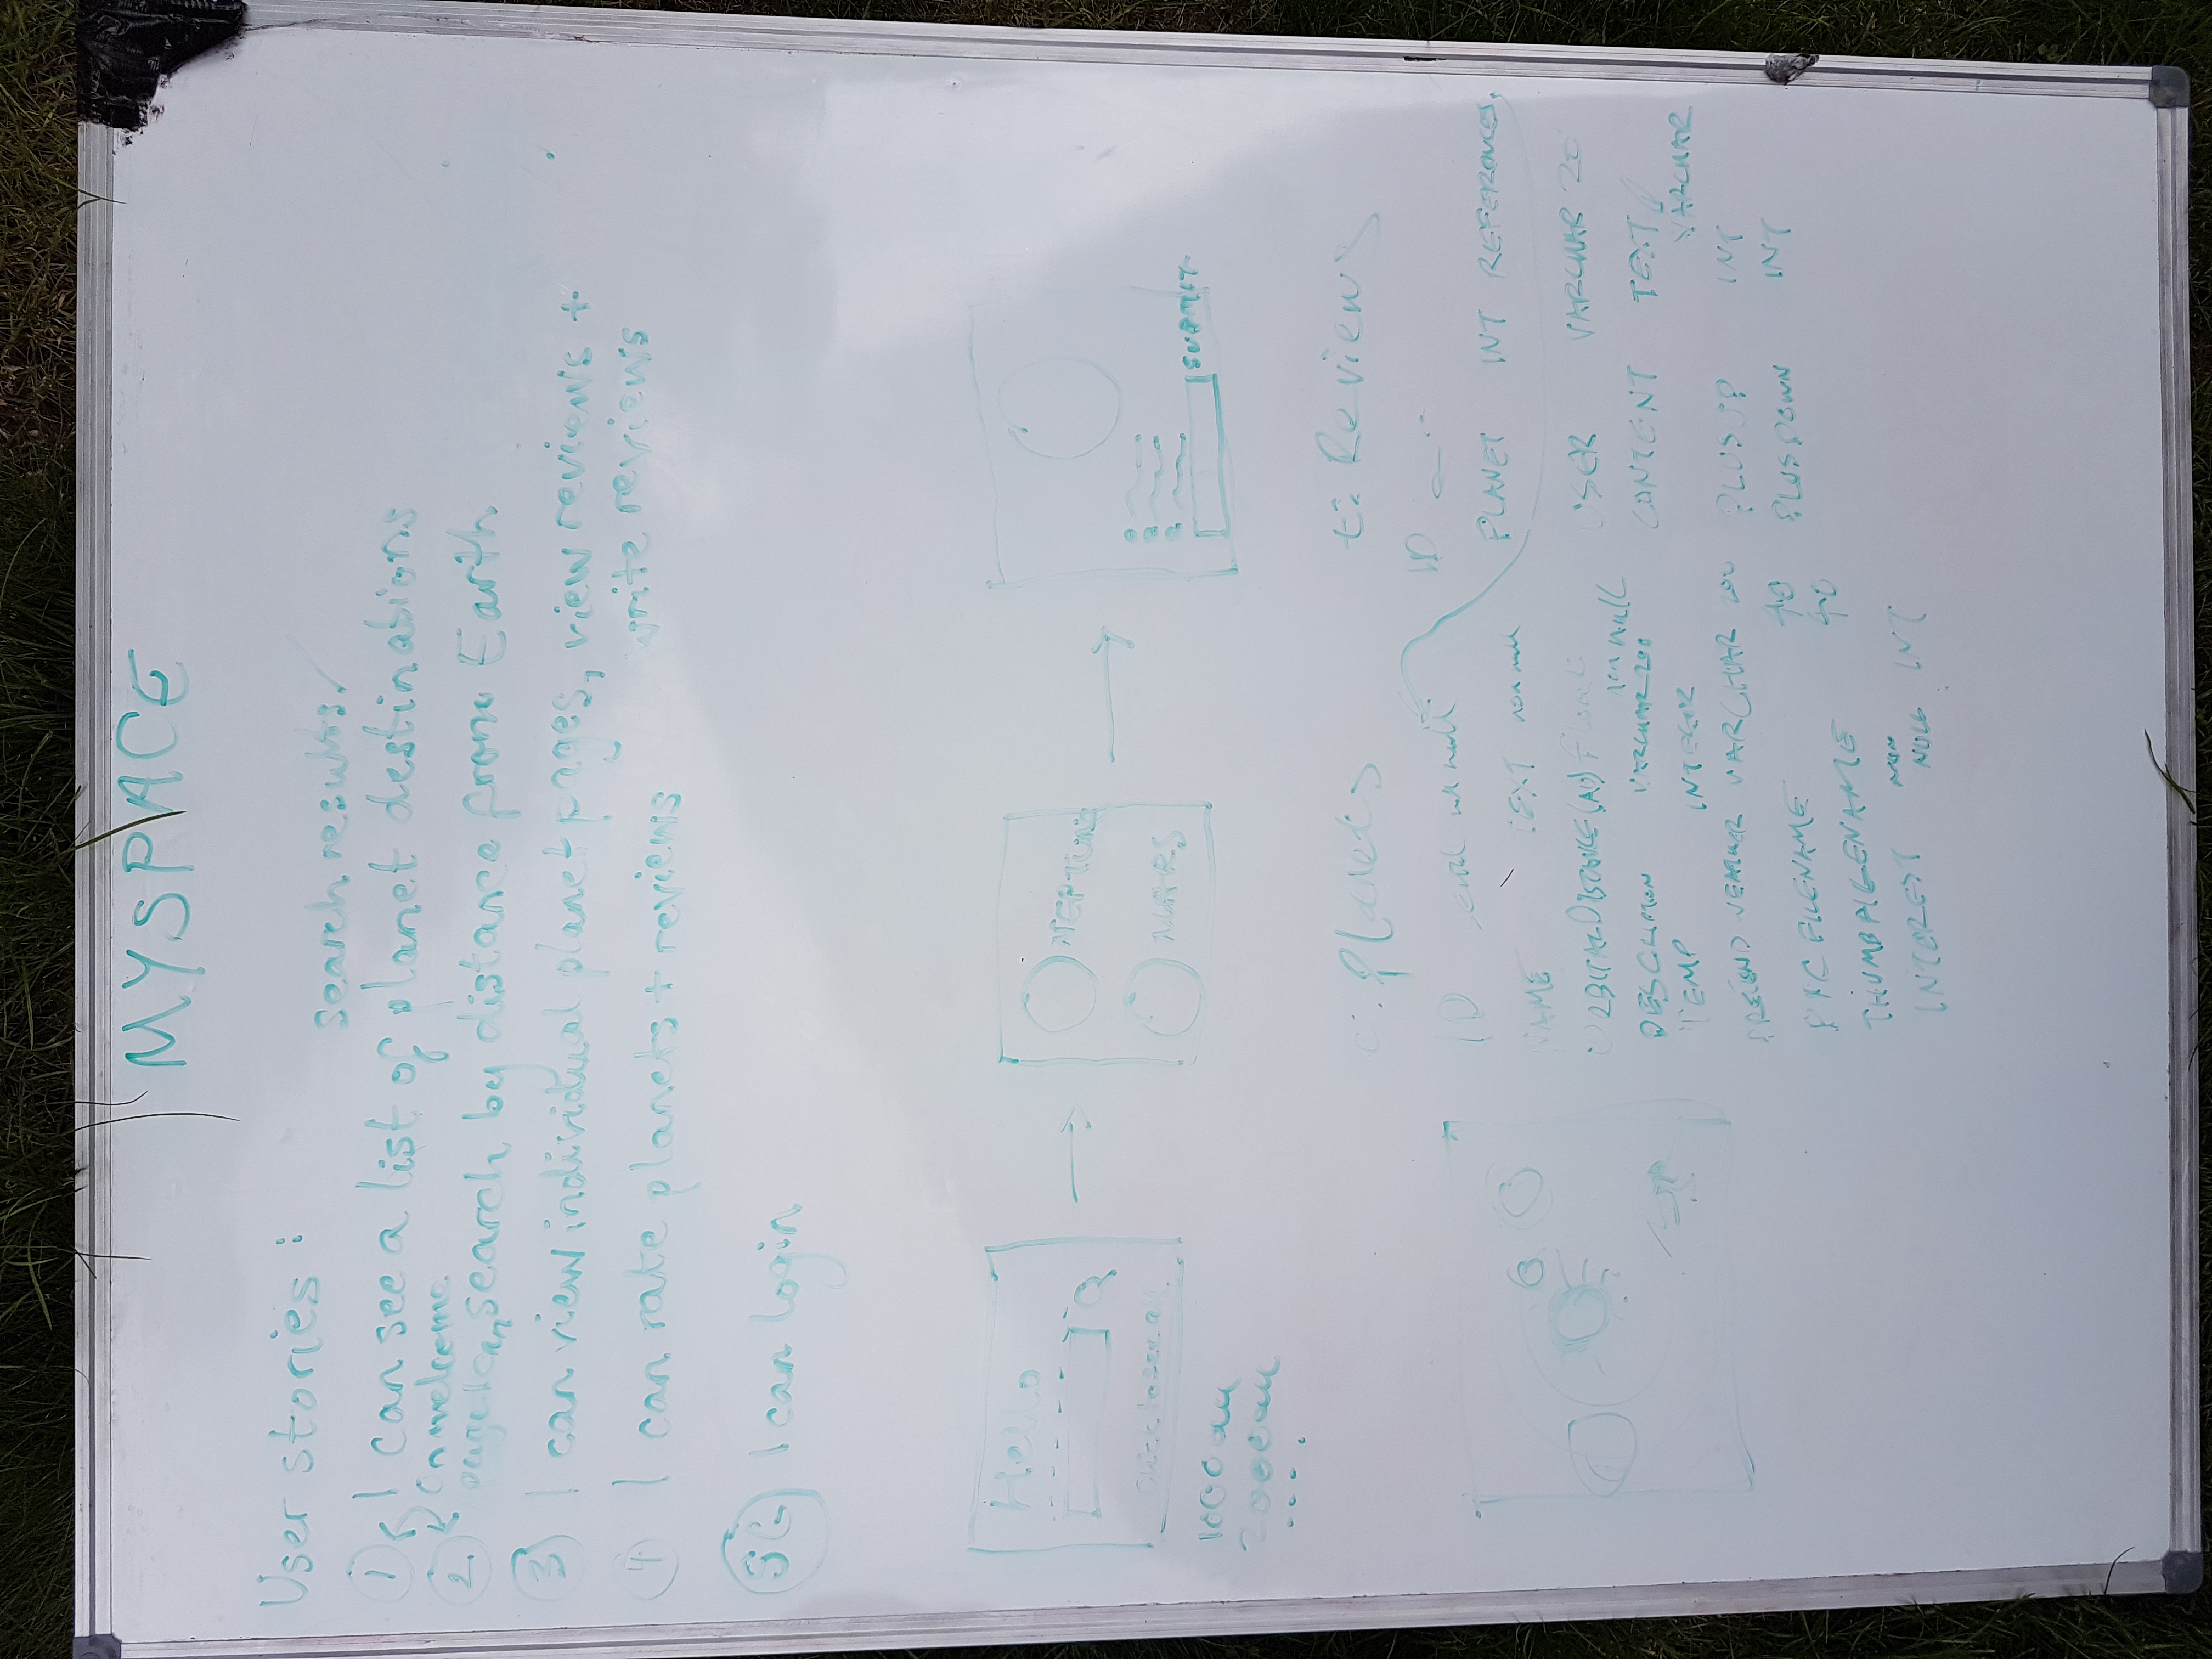 MYSPACE
User stories :
search results/
① I can see a list of planet destinations
On welcome
② page I can search by distance from Earth
③ I can view individual planet pages, view reviews +
write reviews
④ I can rate planets + reviews
SG I can login
Hello
Click to see all
1000au
2000au
....
NEPTUNE
MARS
SUBMIT
: Planets
ID serial non null
NAME TEXT non null
ORBITAL DISTANCE (AU) float
non null
DESCRIPTION VARCHAR 200
TEMP INTEGER
PRETEND WEATHER VARCHAR 200
PIC FILENAME 40
THUMB FILENAME 40
INTEREST NON NULL INT
t: Reviews
ID
PLANET INT REFERENCES
USER VARCHAR 20
CONTENT TEXT/
VARCHAR
PLUSUP INT
PLUSDOWN INT